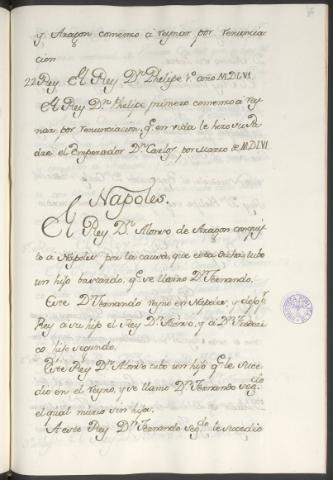 y Aragon comenso á reynar por renuncia
cion
22 Rey. El Rey Dn. Phelipe 1º. año M.D.LVI.
El Rey Dn. Phelipe primero comenso a rey
nar por renunciacion, qe. en vida le hizo su Pa
dre el Emperador Dn. Carlos por Marzo de M.D.LVI
Napoles.
El Rey Dn. Alonso de Aragon conquis
to á Napoles por la causa que esta dicha; tubo
un hijo bastardo, qe. se llamo Dn. Fernando.
Este Dn. Fernando reyno en Napoles, y dejo pr.
Rey a su hijo el Rey Dn. Alonso, y a Dn. Frederi
co hijo segundo.
Este Rey Dn. Alonso tubo un hijo qe. le suce
dio en el reyno, y se llamo Dn. Fernando segdo.
el qual murio sin hijos.
A este Rey Dn. Fernando segdo. le sucedio